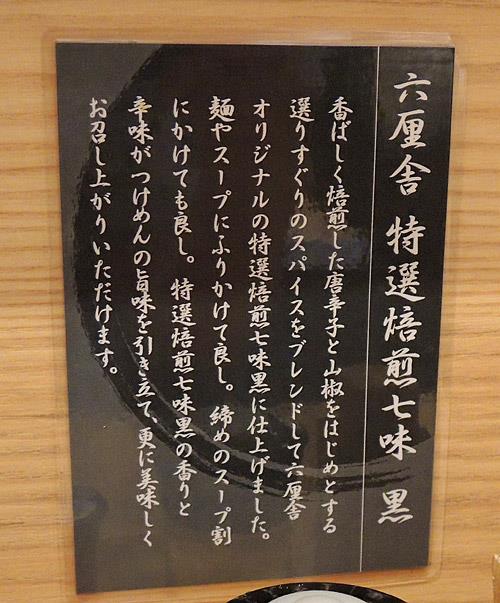 六厘舎 特選焙煎七味 黒
香ばしく焙煎した唐辛子と山椒をはじめとする
選りすぐりのスパイスをブレンドして六厘舎
オリジナルの特選焙煎七味黒に仕上げました。
麺やスープにふりかけて良し。締めのスープ割
にかけても良し。特選焙煎七味黒の香りと
辛味がつけめんの旨味を引き立て、更に美味しく
お召し上がりいただけます。